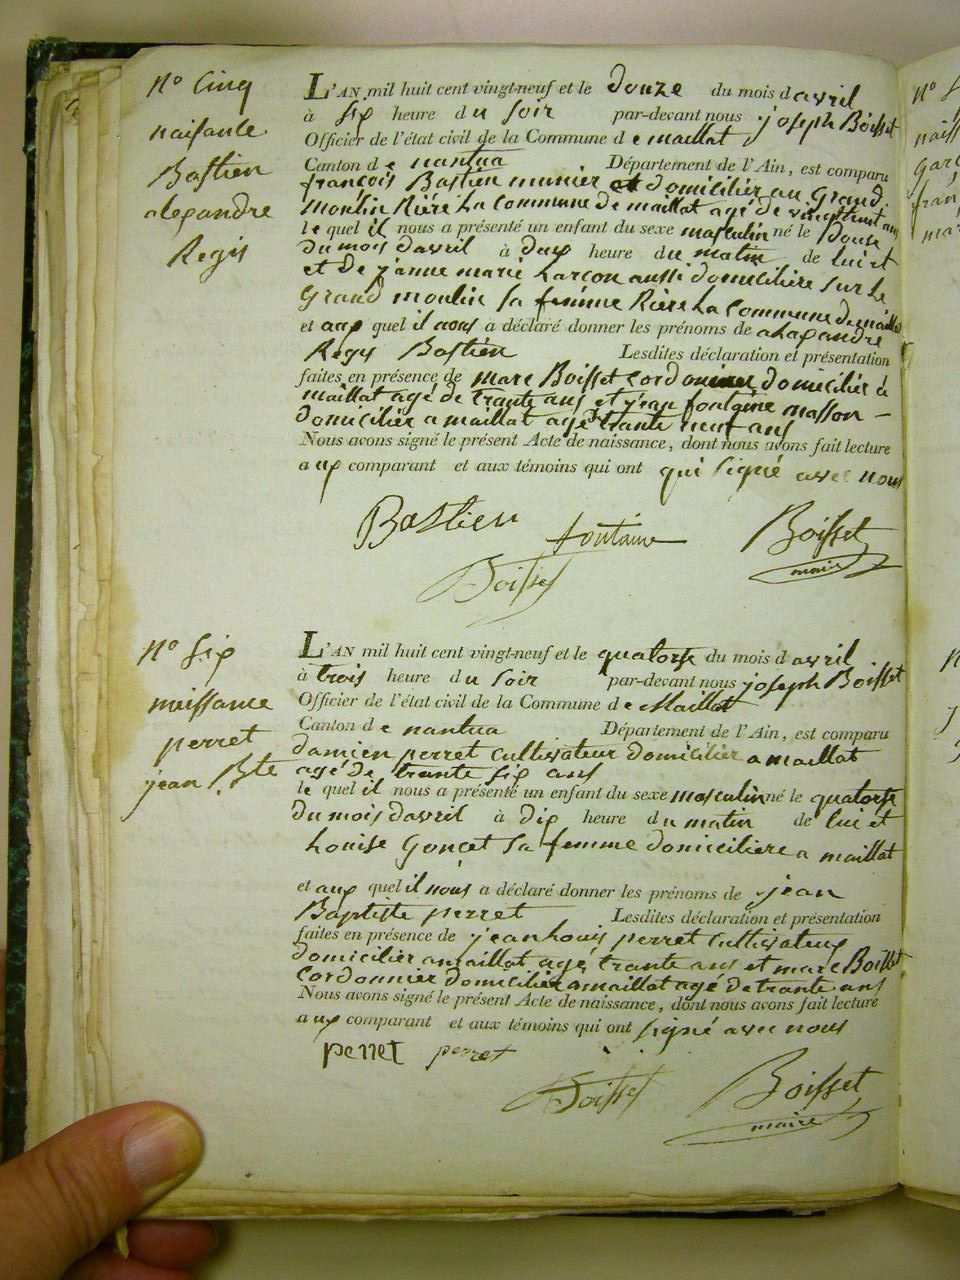 N° Cinq
naisante
Bastien
alexandre
Regis
L'AN mil huit cent vingt-neuf et le douze du mois d avril
à six heure du soir par-devant nous joseph Boisset
Officier de l'état civil de la Commune de maillat
Canton de nantua Département de l'Ain, est comparu
françois Bastien munier et domicilier au Grand
Moulin Rière La Commune de maillat agé de vingthuit ans
le quel il nous a présenté un enfant du sexe masculin né le douse
du mois davril à dux heure du matin de lui et
et de jeanne marie Larçon aussi domicilière sur Le
Grand moulin sa femme Rière La Commune de maillat
et aux quel il nous a déclaré donner les prénoms de alexandre
Regis Bastien Lesdites déclaration et présentation
faites en présence de marc Boisset cordonnier domicilié à
maillat agé de trante ans et jean fontaine masson –
domicilier a maillat agé trante neuf ans
Nous avons signé le présent Acte de naissance, dont nous avons fait lecture
aux comparant et aux témoins qui ont qui signé avec nous
Bastien fontaine Boisset
Boisset maire
N° Six
naissance
perret
jean Bte
L'AN mil huit cent vingt-neuf et le quatorse du mois d avril
à trois heure du soir par-devant nous joseph Boisset
Officier de l'état civil de la Commune de Maillat
Canton de nantua Département de l'Ain, est comparu
damien perret cultivateur domicilier a maillat
agé de trante six ans
le quel il nous a présenté un enfant du sexe masculin né le quatorse
du mois davril à dix heure du matin de lui et
Louise Goncet sa femme domicilière a maillat
et aux quel il nous a déclaré donner les prénoms de jean
Baptiste perret Lesdites déclaration et présentation
faites en présence de jean Louis perret cultivateur
domicilier a maillat agé trante ans et marc Boisset
cordonnier domicilier a maillat agé de trante ans
Nous avons signé le présent Acte de naissance, dont nous avons fait lecture
aux comparant et aux témoins qui ont signé avec nous
perret perret
Boisset Boisset
maire